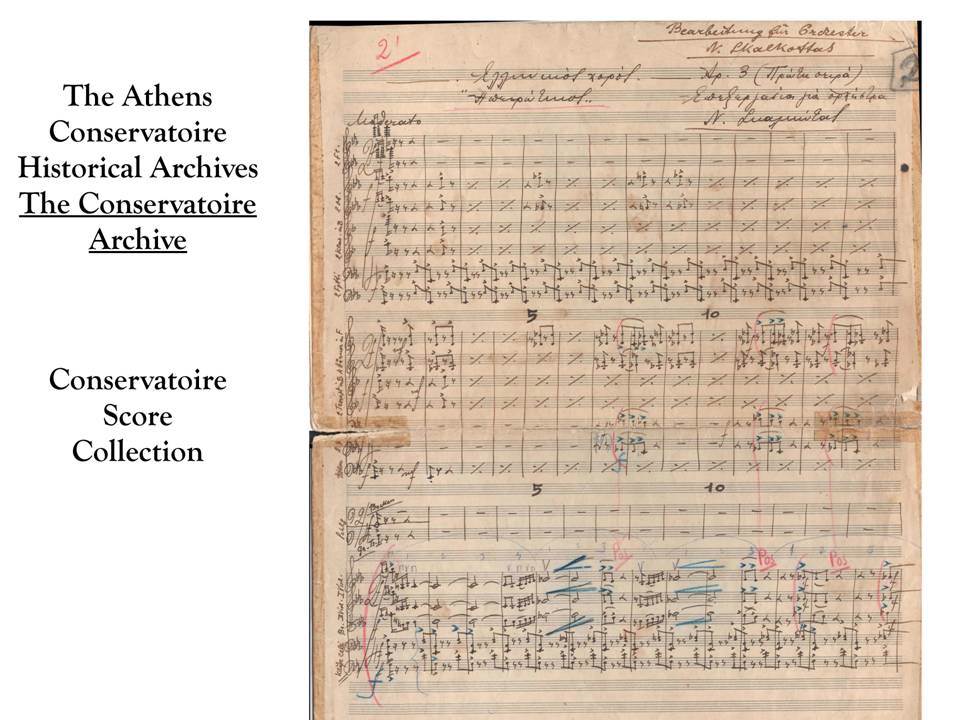 The Athens
Conservatoire
Historical Archives
The Conservatoire
Archive
Conservatoire
Score
Collection
2'
Bearbeitung für Orchester
N. Skalkottas
Ελληνικός χορός. Αρ. 3 (Πρώτη σειρά)
"Ηπειρώτικος" Επεξεργασία για ορχήστρα
Ν. Σκαλκώτας
Moderato
5 10
5 10
Pos
Pos
Pos